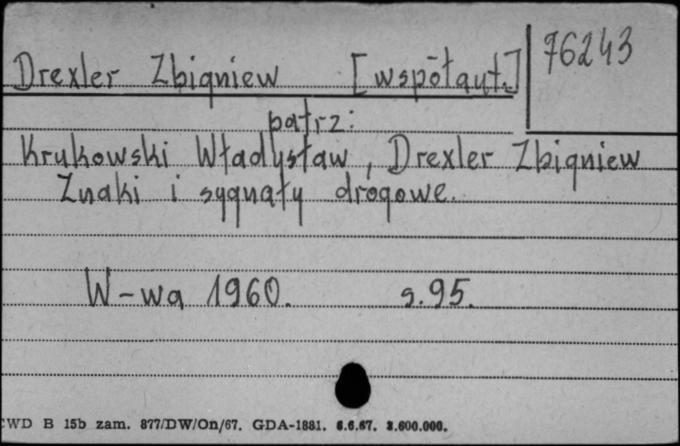 Drexler Zbigniew [współaut.]
76243
patrz:
Krukowski Władysław, Drexler Zbigniew
Znaki i sygnały drogowe.
W-wa 1960. s.95.
CWD B 15b zam. 877/DW/On/67. GDA-1881. 6.6.67. 3.600.000.